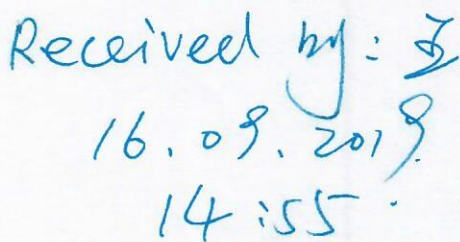 Received by: 王
16.09.2019
14:55